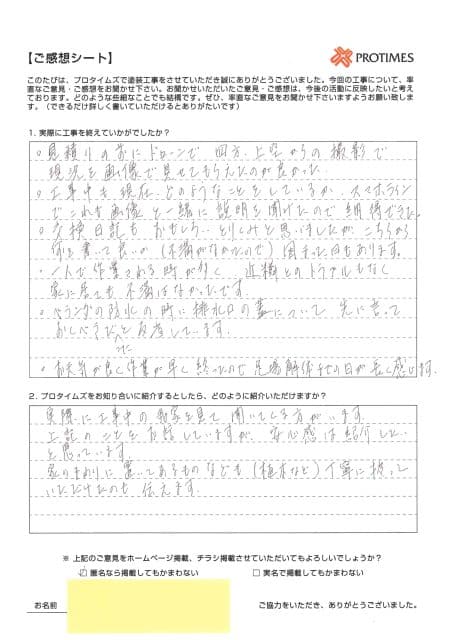 【ご感想シート】
PROTIMES
このたびは、プロタイムズで塗装工事をさせていただき誠にありがとうございました。今回の工事について、率
直なご意見・ご感想をお聞かせ下さい。お聞かせいただいたご意見・ご感想は、今後の活動に反映したいと考え
ております。どのような些細なことでも結構です。ぜひ、率直なご意見をお聞かせ下さいますようお願い致しま
す。（できるだけ詳しく書いていただけるとありがたいです）
1. 実際に工事を終えていかがでしたか？
○見積りの前にドローンで四方、上空からの撮影で
現況を画像で見せてもらえたのが良かった。
○工事中も現在、どのようなことをしているか、スマホライン
でこれも画像と一緒に説明を聞けたので納得できた。
○交換日記も おもしろい とりくみと思いましたが、こちらから
何を書いて良いか（不満がなかったので）困った日もあります。
○一人で作業される時が多く、近隣とのトラブルもなく
家に居ても不満はなかったです。
○ベランダの防水の時に排水口の蓋について、先に言って
おしべきだったと反省しています。
○お天気が良く作業が早く終ったので足場解体までの日が長く感じます。
2. プロタイムズをお知り合いに紹介するとしたら、どのように紹介いただけますか？
実際に工事中の我家を見て聞いてくる方がいます。
上記のことをお話していますが、安心感は紹介したい
と思っています。
家のまわりに置いてあるものなども（植木など）丁寧に扱って
いただけたのも伝えます。
※ 上記のご意見をホームページ掲載、チラシ掲載させていただいてもよろしいでしょうか？
☑ 匿名なら掲載してもかまわない　□ 実名で掲載してもかまわない
お名前
ご協力をいただき、ありがとうございました。